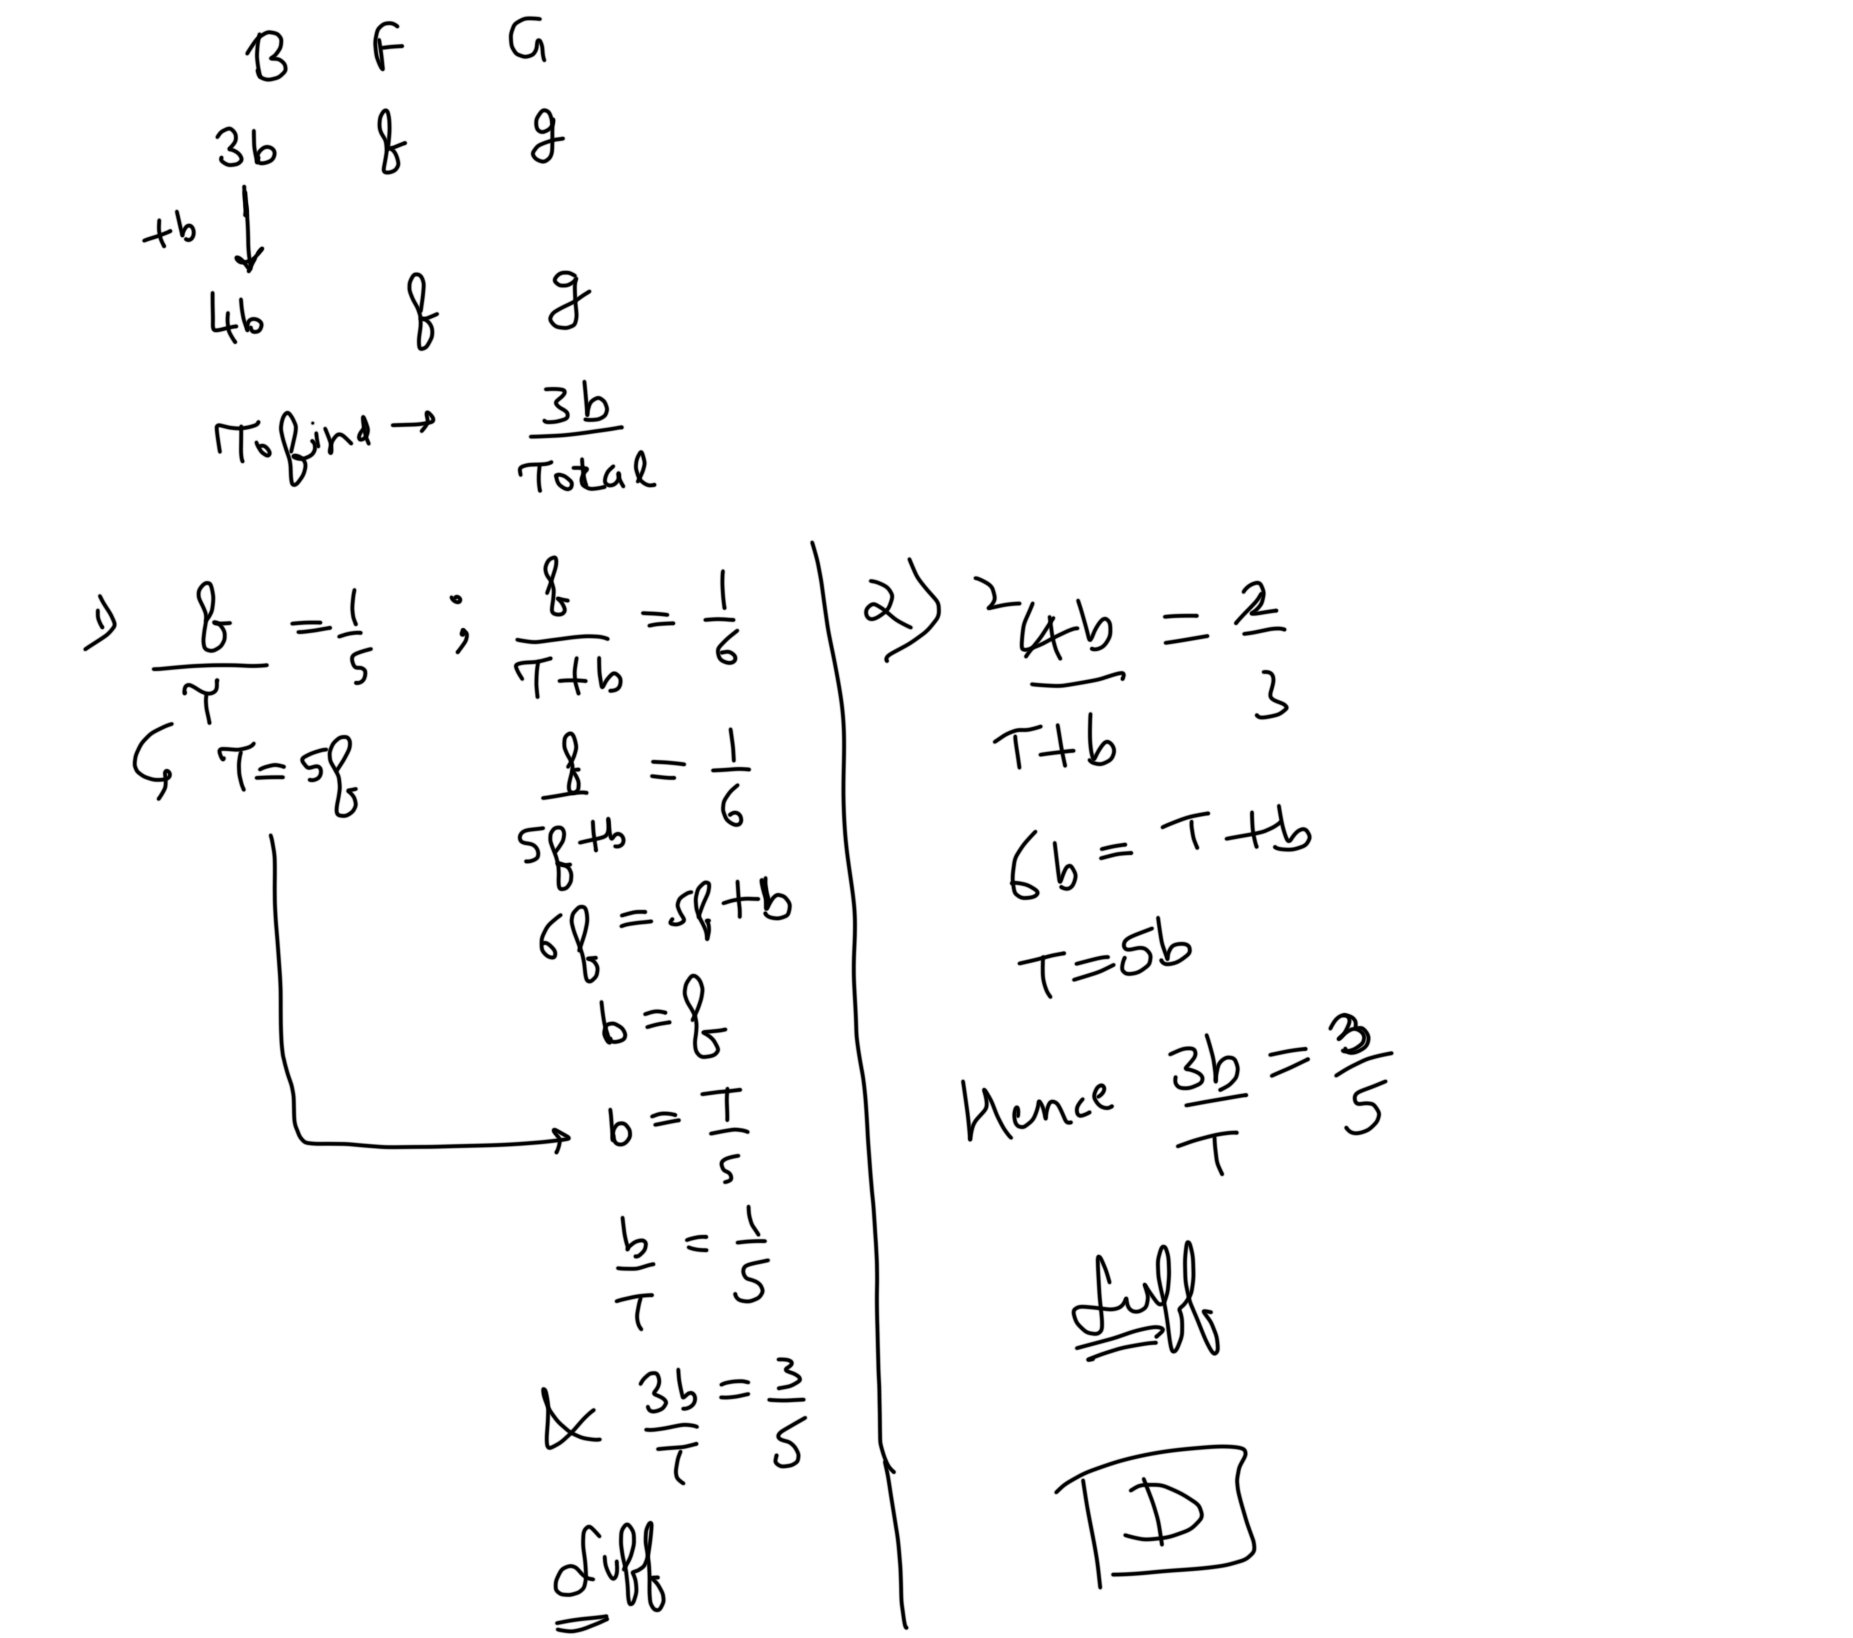 B F G
3b f g
+b
4b f g
To find → 3b/Total
1) f/T = 1/5 ; f/T+b = 1/6
T = 5f
f/5f+b = 1/6
6f = 5f+b
b = f
b = T/5
b/T = 1/5
& 3b/T = 3/5
Suff
2) 2 4b/T+b = 2/3
6b = T+b
T = 5b
Hence 3b/T = 3/5
Suff
D